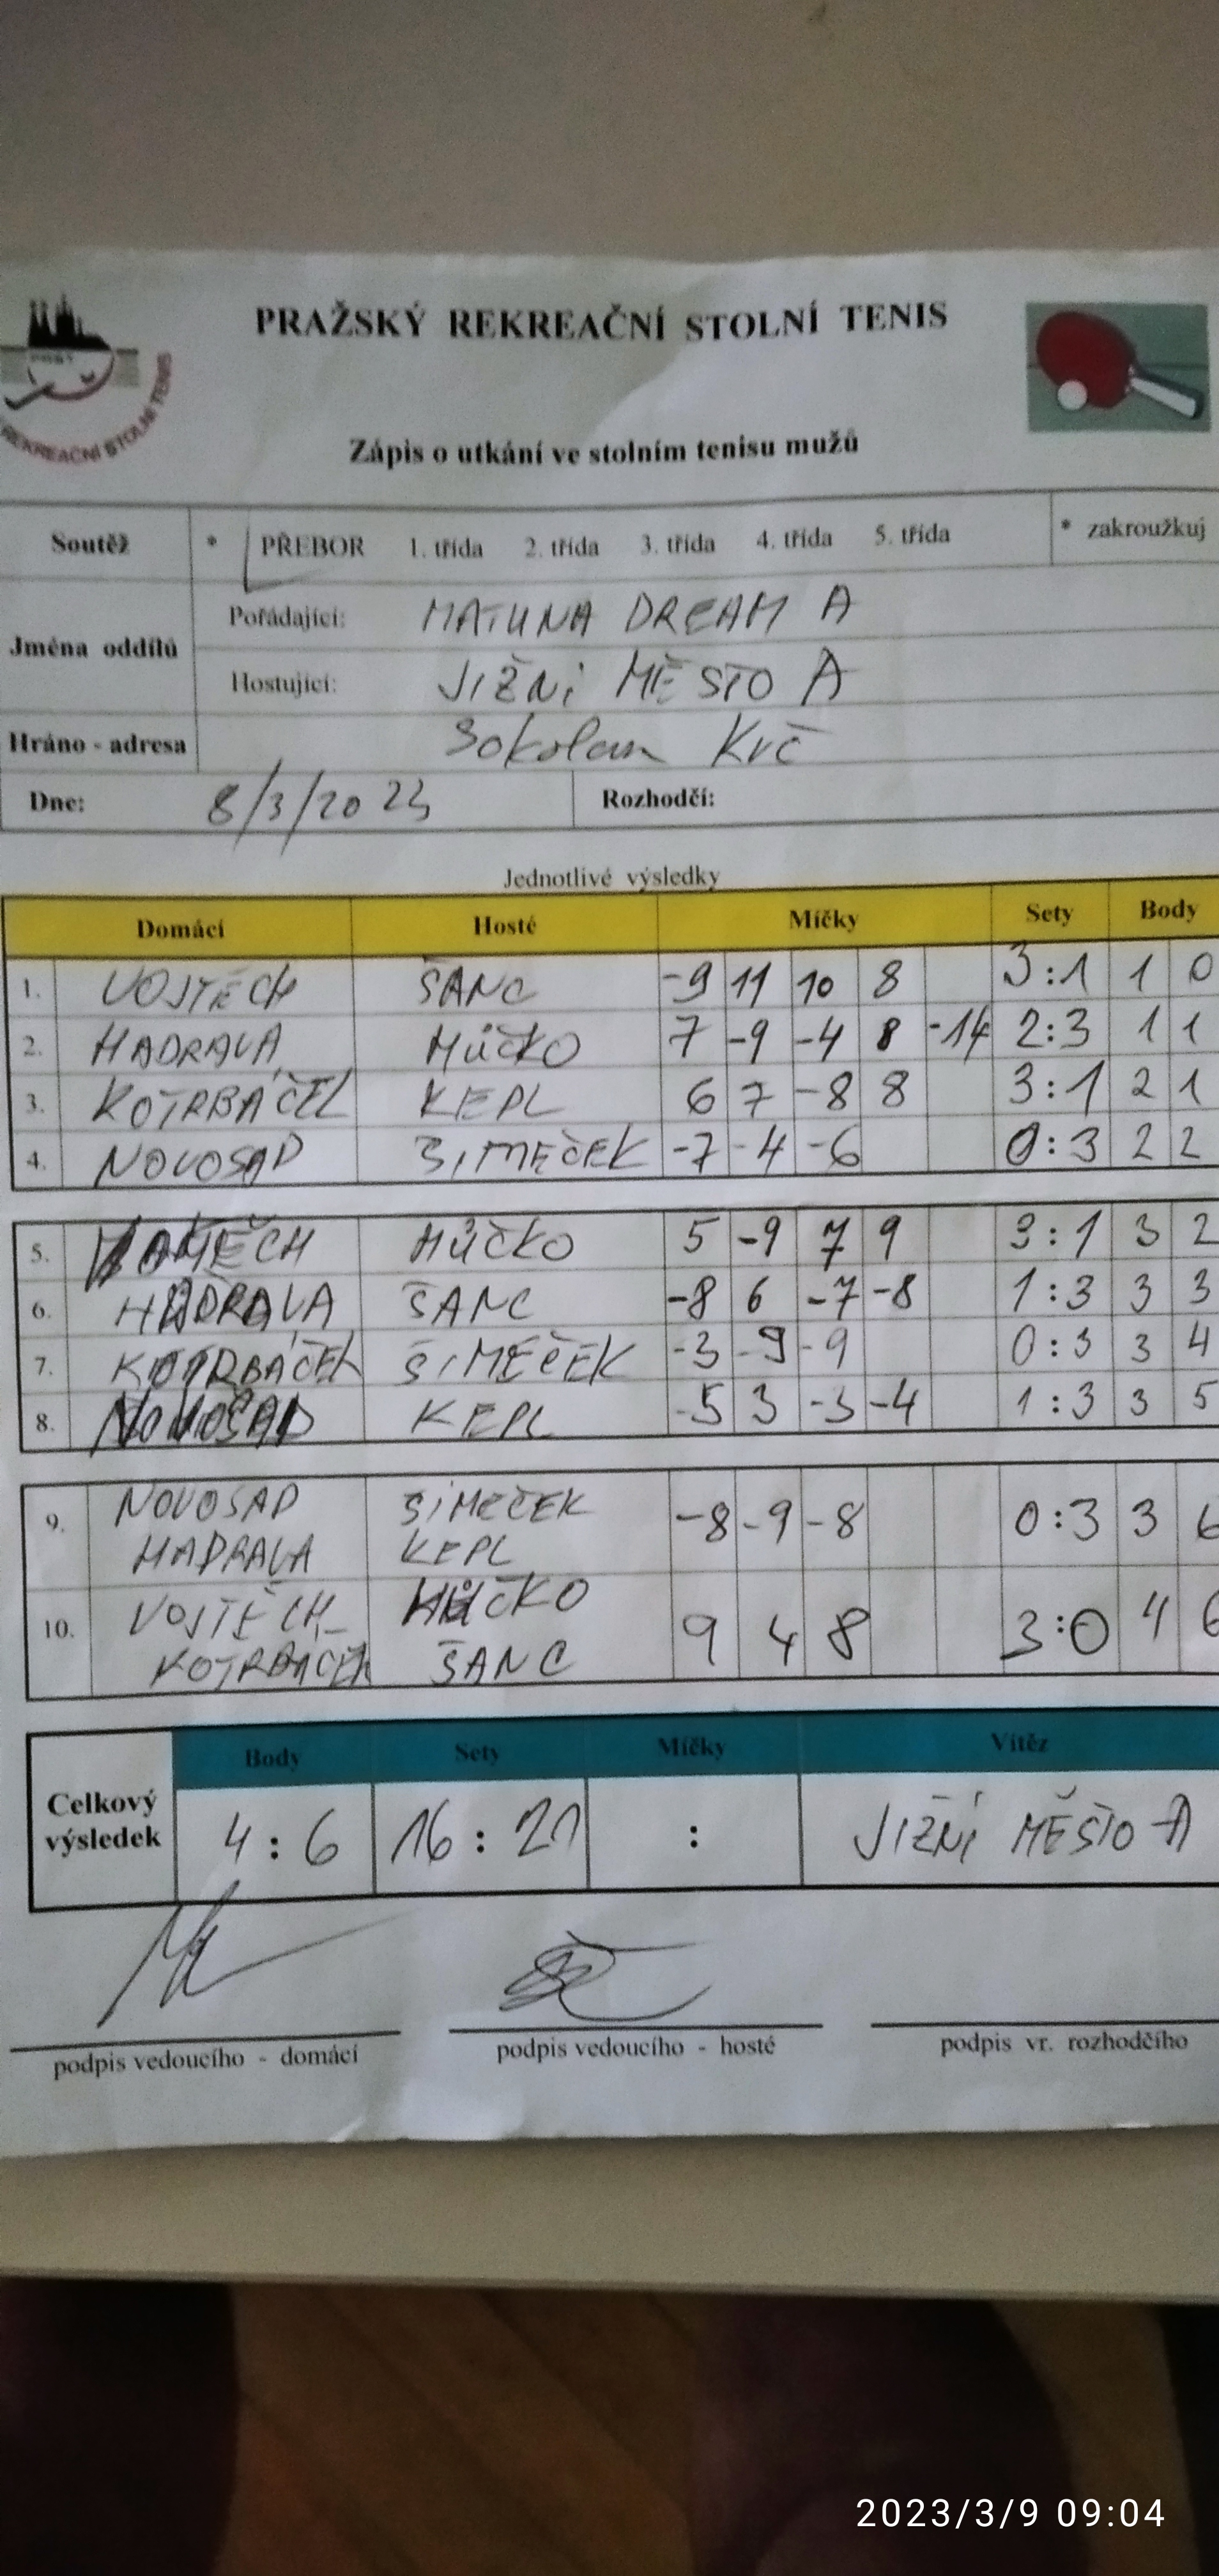 PRAŽSKÝ REKREAČNÍ STOLNÍ TENIS
REKREAČNÍ STOLNÍ TENIS
Zápis o utkání ve stolním tenisu mužů
Soutěž * PŘEBOR 1. třída 2. třída 3. třída 4. třída 5. třída * zakroužkuj
Jména oddílů
Pořádající: MATUNA DREAM A
Hostující: JIŽNÍ MĚSTO A
Hráno - adresa Sokolam Krč
Dne: 8/3/2023 Rozhodčí:
Jednotlivé výsledky
Domácí Hosté Míčky Sety Body
1. VOJTĚCH ŠANC -9 11 10 8 3:1 1 0
2. HADRAVA HŮČKO 7 -9 -4 8 -14 2:3 1 1
3. KOTRBÁČEK KEPL 6 7 -8 8 3:1 2 1
4. NOVOSAD ŠIMEČEK -7 -4 -6 0:3 2 2
5. HŮČKO 5 -9 7 9 3:1 3 2
6. HADRAVA ŠANC -8 6 -7 -8 1:3 3 3
7. KOTRBÁČEK ŠIMEČEK -3 -9 -9 0:3 3 4
8. NOVOSAD KEPL -5 3 -3 -4 1:3 3 5
9. NOVOSAD ŠIMEČEK -8 -9 -8 0:3 3 6
HADRAVA KEPL
10. VOJTĚCH HŮČKO 9 4 8 3:0 4 6
KOTRBÁČEK ŠANC
Body Sety Míčky Vítěz
Celkový výsledek 4:6 16:21 : JIŽNÍ MĚSTO A
podpis vedoucího - domácí podpis vedoucího - hosté podpis vr. rozhodčího
2023/3/9 09:04